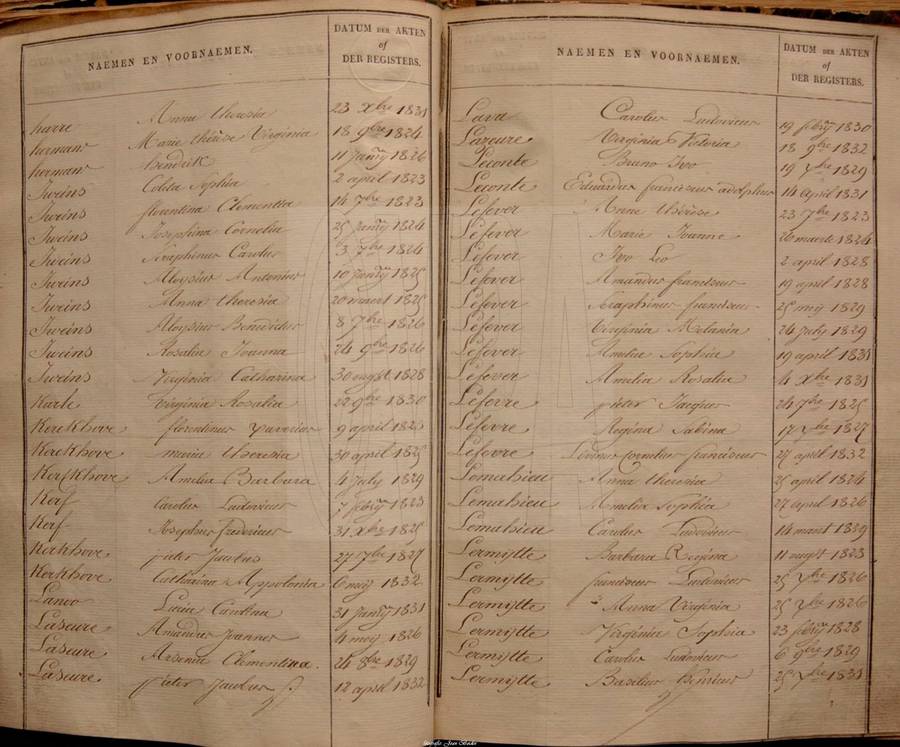 NAEMEN EN VOORNAEMEN. DATUM DER AKTEN
of
DER REGISTERS.
harre Anna theresia 23 Xbre 1831
hermans Marie thérèse Virginia 18 9bre 1824
hermans hendrik 11 January 1826
Iweins Coleta Sophia 2 april 1823
Iweins florentina Clementia 14 7bre 1823
Iweins Josephina Cornelia 25 January 1824
Iweins Seraphinus Carolus 3 7bre 1824
Iweins Aloysius Antonius 10 January 1825
Iweins Anna theresia 20 maart 1825
Iweins Aloysius Benedictus 8 7bre 1826
Iweins Rosalia Joanna 24 9bre 1826
Iweins Virginia Catharina 30 ougst 1828
Karle Virginia Rosalia 22 9bre 1830
Kerckhove florentinus Xaverius 9 april 1823
Kerckhove maria theresia 30 april 1825
Kerckhove Amelia Barbara 4 july 1829
Kerf Carolus Ludovicus 7 febry 1823
Kerf Josephus fredericus 31 Xbre 1825
Kerkhove pieter Jacobus 27 7bre 1827
Kerkhove Catharina Appolonia 6 mey 1832
Lanoo Lucia Carolina 31 January 1831
Laseure Amandus Joannes 4 mey 1826
Laseure Arsenia Clementina. 24 8bre 1829
Laseure pieter Jacobus 12 april 1832
NAEMEN EN VOORNAEMEN. DATUM DER AKTEN
of
DER REGISTERS.
Lava Carolus Ludovicus 19 febry 1830
Lazeure Virginia Victoria 18 9bre 1832
Leconte Bruno Ivo 19 Xbre 1829
Leconte Eduardus franciscus adolphus 14 april 1831
Lefever Anna thérèse 23 7bre 1823
Lefever Marie Joanne 26 maert 1824
Lefever Ivo Leo 2 april 1828
Lefever Amandus franciscus 19 april 1828
Lefever Seraphinus franciscus 25 mey 1829
Lefever Virginia Melania 24 july 1829
Lefever Amelia Sophia 19 april 1831
Lefever Amelia Rosalia 4 Xbre 1831
Lefevre pieter Jacques 24 7bre 1825
Lefevre Regina Sabina 17 Xbre 1827
Lefevre Cornelius franciscus 27 april 1832
Lemahieu Anna theresia 25 april 1824
Lemahieu Amelia Sophia 27 april 1826
Lemahieu Carolus Ludovicus 14 maart 1829
Lermytte Barbara Regina 11 ougst 1823
Lermytte franciscus Ludovicus 25 Xbre 1826
Lermytte Anna Virginia 25 Xbre 1826
Lermytte Virginia Sophia 23 febry 1828
Lermytte Carolus Ludovicus 6 9bre 1829
Lermytte Basilius 25 Xbre 1831